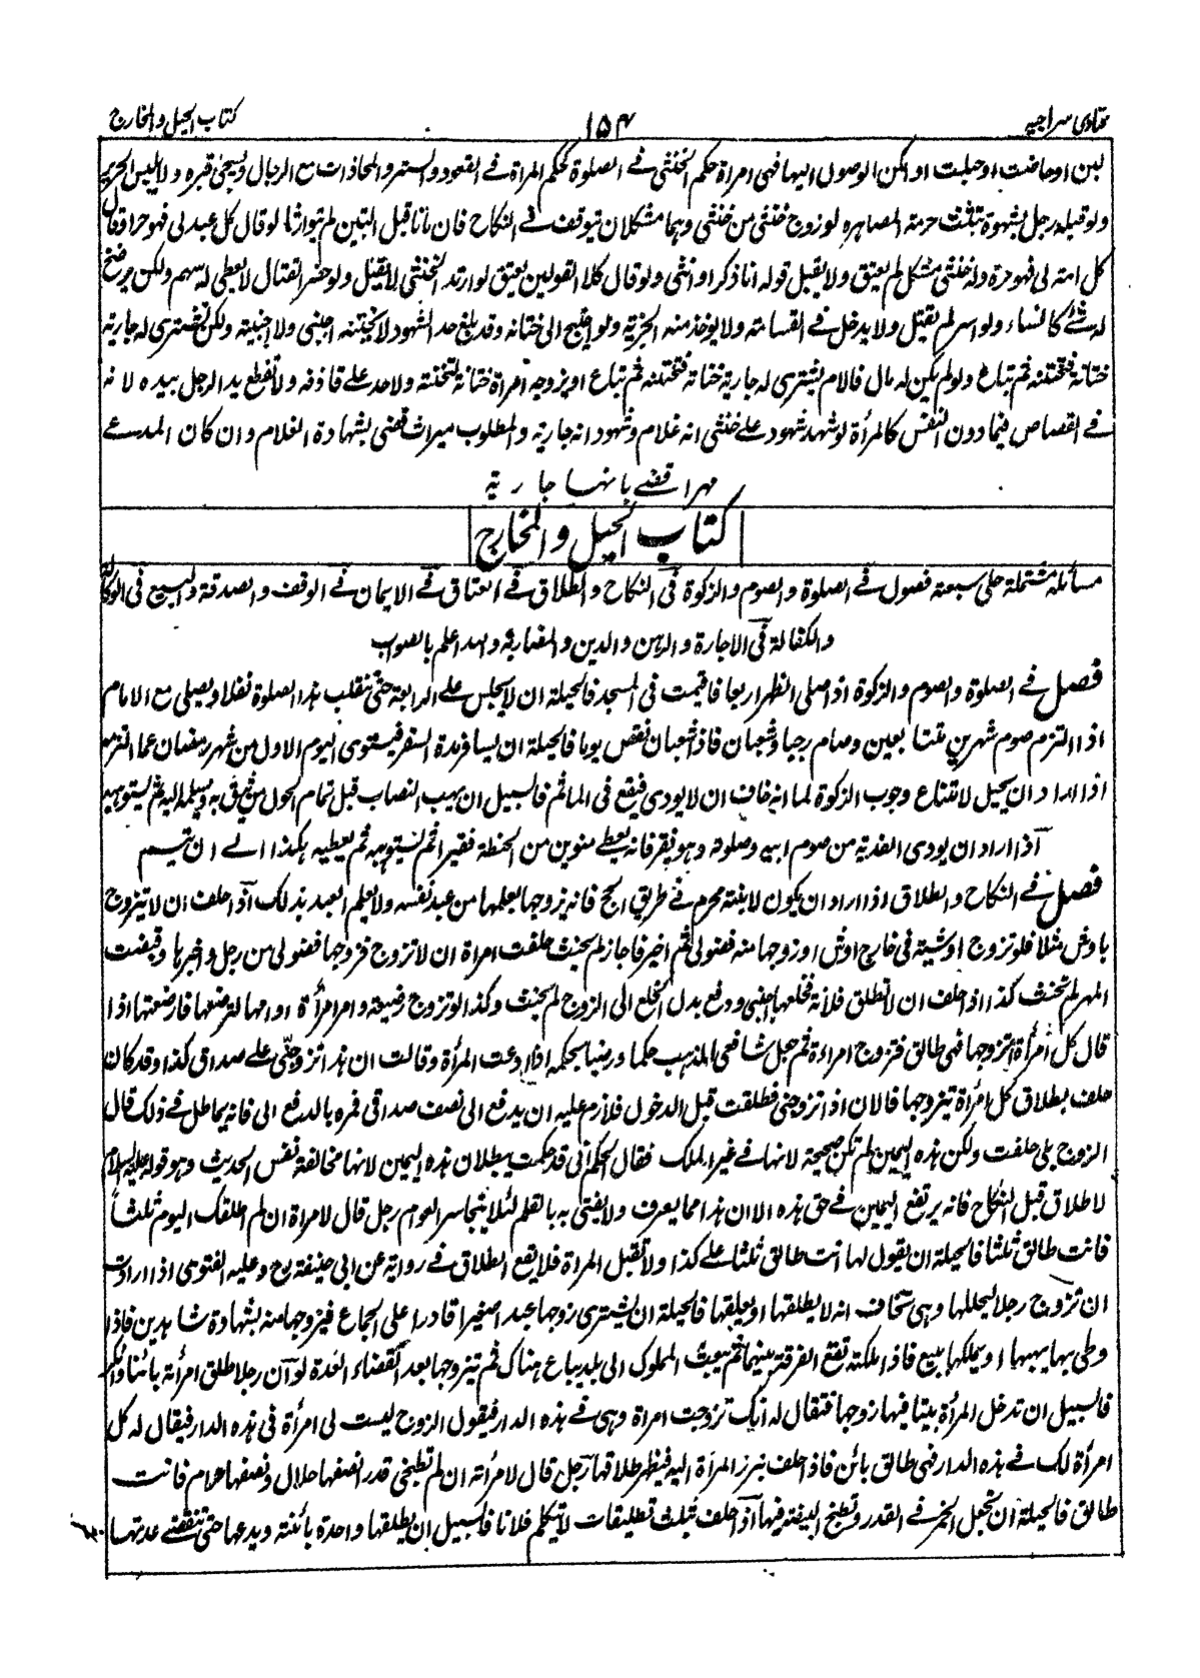 فتاوى سراجيه
١٥٤
كتاب الحيل والمخارج
لبن اوحاضت اوحبلت او امكن الوصول اليها فهى امرأة حكم الخنثى فے الصلوة كحكم المرأة فے القعود والستر والمحاذات مع الرجال ويسجى قبره ولا يلبس الحرير
ولو قبله رجل بشهوة تثبت حرمة المصاهره لو زوج خنثى من خنثى وهما مشكلان يتوقف فے النكاح فان ماتا قبل التبين لم يتوارثا لو قال كل عبد لى فهو حر او قال
كل امة لى فهو حرة وله خنثى مشكل لم يعتق ولا يقبل قوله انا ذكر او انثى ولو قال كلا القولين يعتق لو ارتد الخنثى لا يقتل ولو حضر القتال لا يعطى له سهم ولكن يرضخ
له شئے كالنساء ولو اسر لم يقتل ولا يدخل فے القسامة ولا يوخذ منه الجزية ولو احتيج الى ختانه وقد بلغ حد الشهود لا يختنه اجنبى ولا اجنبية ولكن تشترى له جارية
ختانة فتختنه ثم تباع ولو لم يكن له مال فالامام يشترى له جارية ختانة فتختنه ثم تباع او يزوجه امرأة ختانة لتختنه ولا حد على قاذفه ولا تقطع يد الرجل بيده لانه
فے القصاص فيما دون النفس كالمرأة لو شهد شهود على خنثى انه غلام وشهود انه جارية والمطلوب ميراث قضى بشهادة الغلام وان كان المدعے
مهرا قضے بانها جارية
كتاب الحيل والمخارج
مسائله مشتملة على سبعة فصول فے الصلوة والصوم والزكوة فى النكاح والطلاق فے العتاق فے الايمان فے الوقف والصدقة والبيع فى الوكالة
والكفالة فى الاجارة والرهن والدين والمضاربة والله اعلم بالصواب
فصل فے الصلوة والصوم والزكوة اذا صلى الظهر اربعا فاقيمت فى المسجد فالحيلة ان لا يجلس على الرابعة حتى تنقلب هذه الصلوة نفلا ويصلى مع الامام
اذا التزم صوم شهرين متتابعين وصام رجبا وشعبان فاذا شعبان نقص يوما فالحيلة ان يسافر مدة السفر فيستوى اليوم الاول من شهر رمضان عما التزم
اذا اراد ان يحيل لامتناع وجوب الزكوة لما انه خاف ان لا يودى فيقع فى الماثم فالسبيل ان يهب النصاب قبل تمام الحول من يثق به ويسلمه اليه ثم يستوهبه
اذا اراد ان يودى الفدية من صوم ابيه وصلوته وهو فقير فانه يعطے منوين من الحنطة فقيرا ثم يستوهبه ثم يعطيه هكذا الے ان يتم
فصل فے النكاح والطلاق اذا اراد ان يكون لابنته محرم فے طريق الحج فانه يزوجها بعلمها من عبد نفسه ولا يعلم العبد بذلك اذا حلف ان لا يتزوج
باوش مثلا فلو تزوج اوشية فى خارج اوش او زوجها منه فضولى ثم اخبر فاجاز لم يحنث حلفت امرأة ان لا تزوج فزوجها فضولى من رجل واخبرها وقبضت
المهر لم تحنث كذا اذا حلف ان لا تطلق فلانة فخلعها اجنبى ودفع بدل الخلع الى الزوج لم يحنث وكذا لو تزوج رضيعة وامر امرأة او امها لترضعها فارضعتها اذا
قال كل امرأة اتزوجها فهى طالق فتزوج امراءة ثم جعل شافعى المذهب حكما ورضيا بحكمه اذا ادعت المرأة وقالت ان هذا تزوجنى على صداق كذا وقد كان
حلف بطلاق كل امرأة يتزوجها فالان اذا تزوجنى فطلقت قبل الدخول فلازم عليه ان يدفع الى نصف صداقى فمره بالدفع الى فانه يماطل فے ذلك قال
الزوج بلى حلفت ولكن هذه اليمين لم تكن صحيحة لانها فے غير الملك فقال الحكم انى قد حكمت ببطلان هذه اليمين لانها مخالفة نفس الحديث وهو قوله عليه السلام
لا طلاق قبل النكاح فانه يرتفع اليمين فے حق هذه الا ان هذا مما يعرف ولا يفتى به بالقلم لئلا يتجاسر العوام رجل قال لامرأة ان لم اطلقك اليوم ثلثا
فانت طالق ثلثا فالحيلة ان يقول لها انت طالق ثلثا على كذا ولا تقبل المرأة فلا يقع الطلاق فے رواية عن ابى حنيفة رح وعليه الفتوى اذا ارادت
ان تزوج رجلا ليحللها وهى تخاف انه لا يطلقها او يعلقها فالحيلة ان يشترى زوجها عبدا صغيرا قادرا على الجماع فيزوجها منه بشهادة شاهدين فاذا
وطى بها يهبها او يملكها ببيع فاذا ملكته تقع الفرقة بينهما ثم يبعث المملوك الى بلد يباع هناك ثم يتزوجها بعد انقضاء العدة لو ان رجلا طلق امرأته بائنا وانكر
فالسبيل ان تدخل المرأة بيتا فيها زوجها فتقال له انك تزوجت امراة وهى فے هذه الدار فيقول الزوج ليست لى امرأة فى هذه الدار فيقال له كل
امرأة لك فے هذه الدار فهى طالق بائن فاذا حلف تبرز المرأة اليه فيظهر طلاقها رجل قال لامرأته ان لم تطبخى قدرا نصفها حلال ونصفها حرام فانت
طالق فالحيلة ان تجعل الخمر فے القدر وتطبخ البيضة فيها اذا حلف بثلث تطليقات لا يتكلم فلانا فالسبيل ان يطلقها واحدة بائنة ويدعها حتى تنقضے عدتها